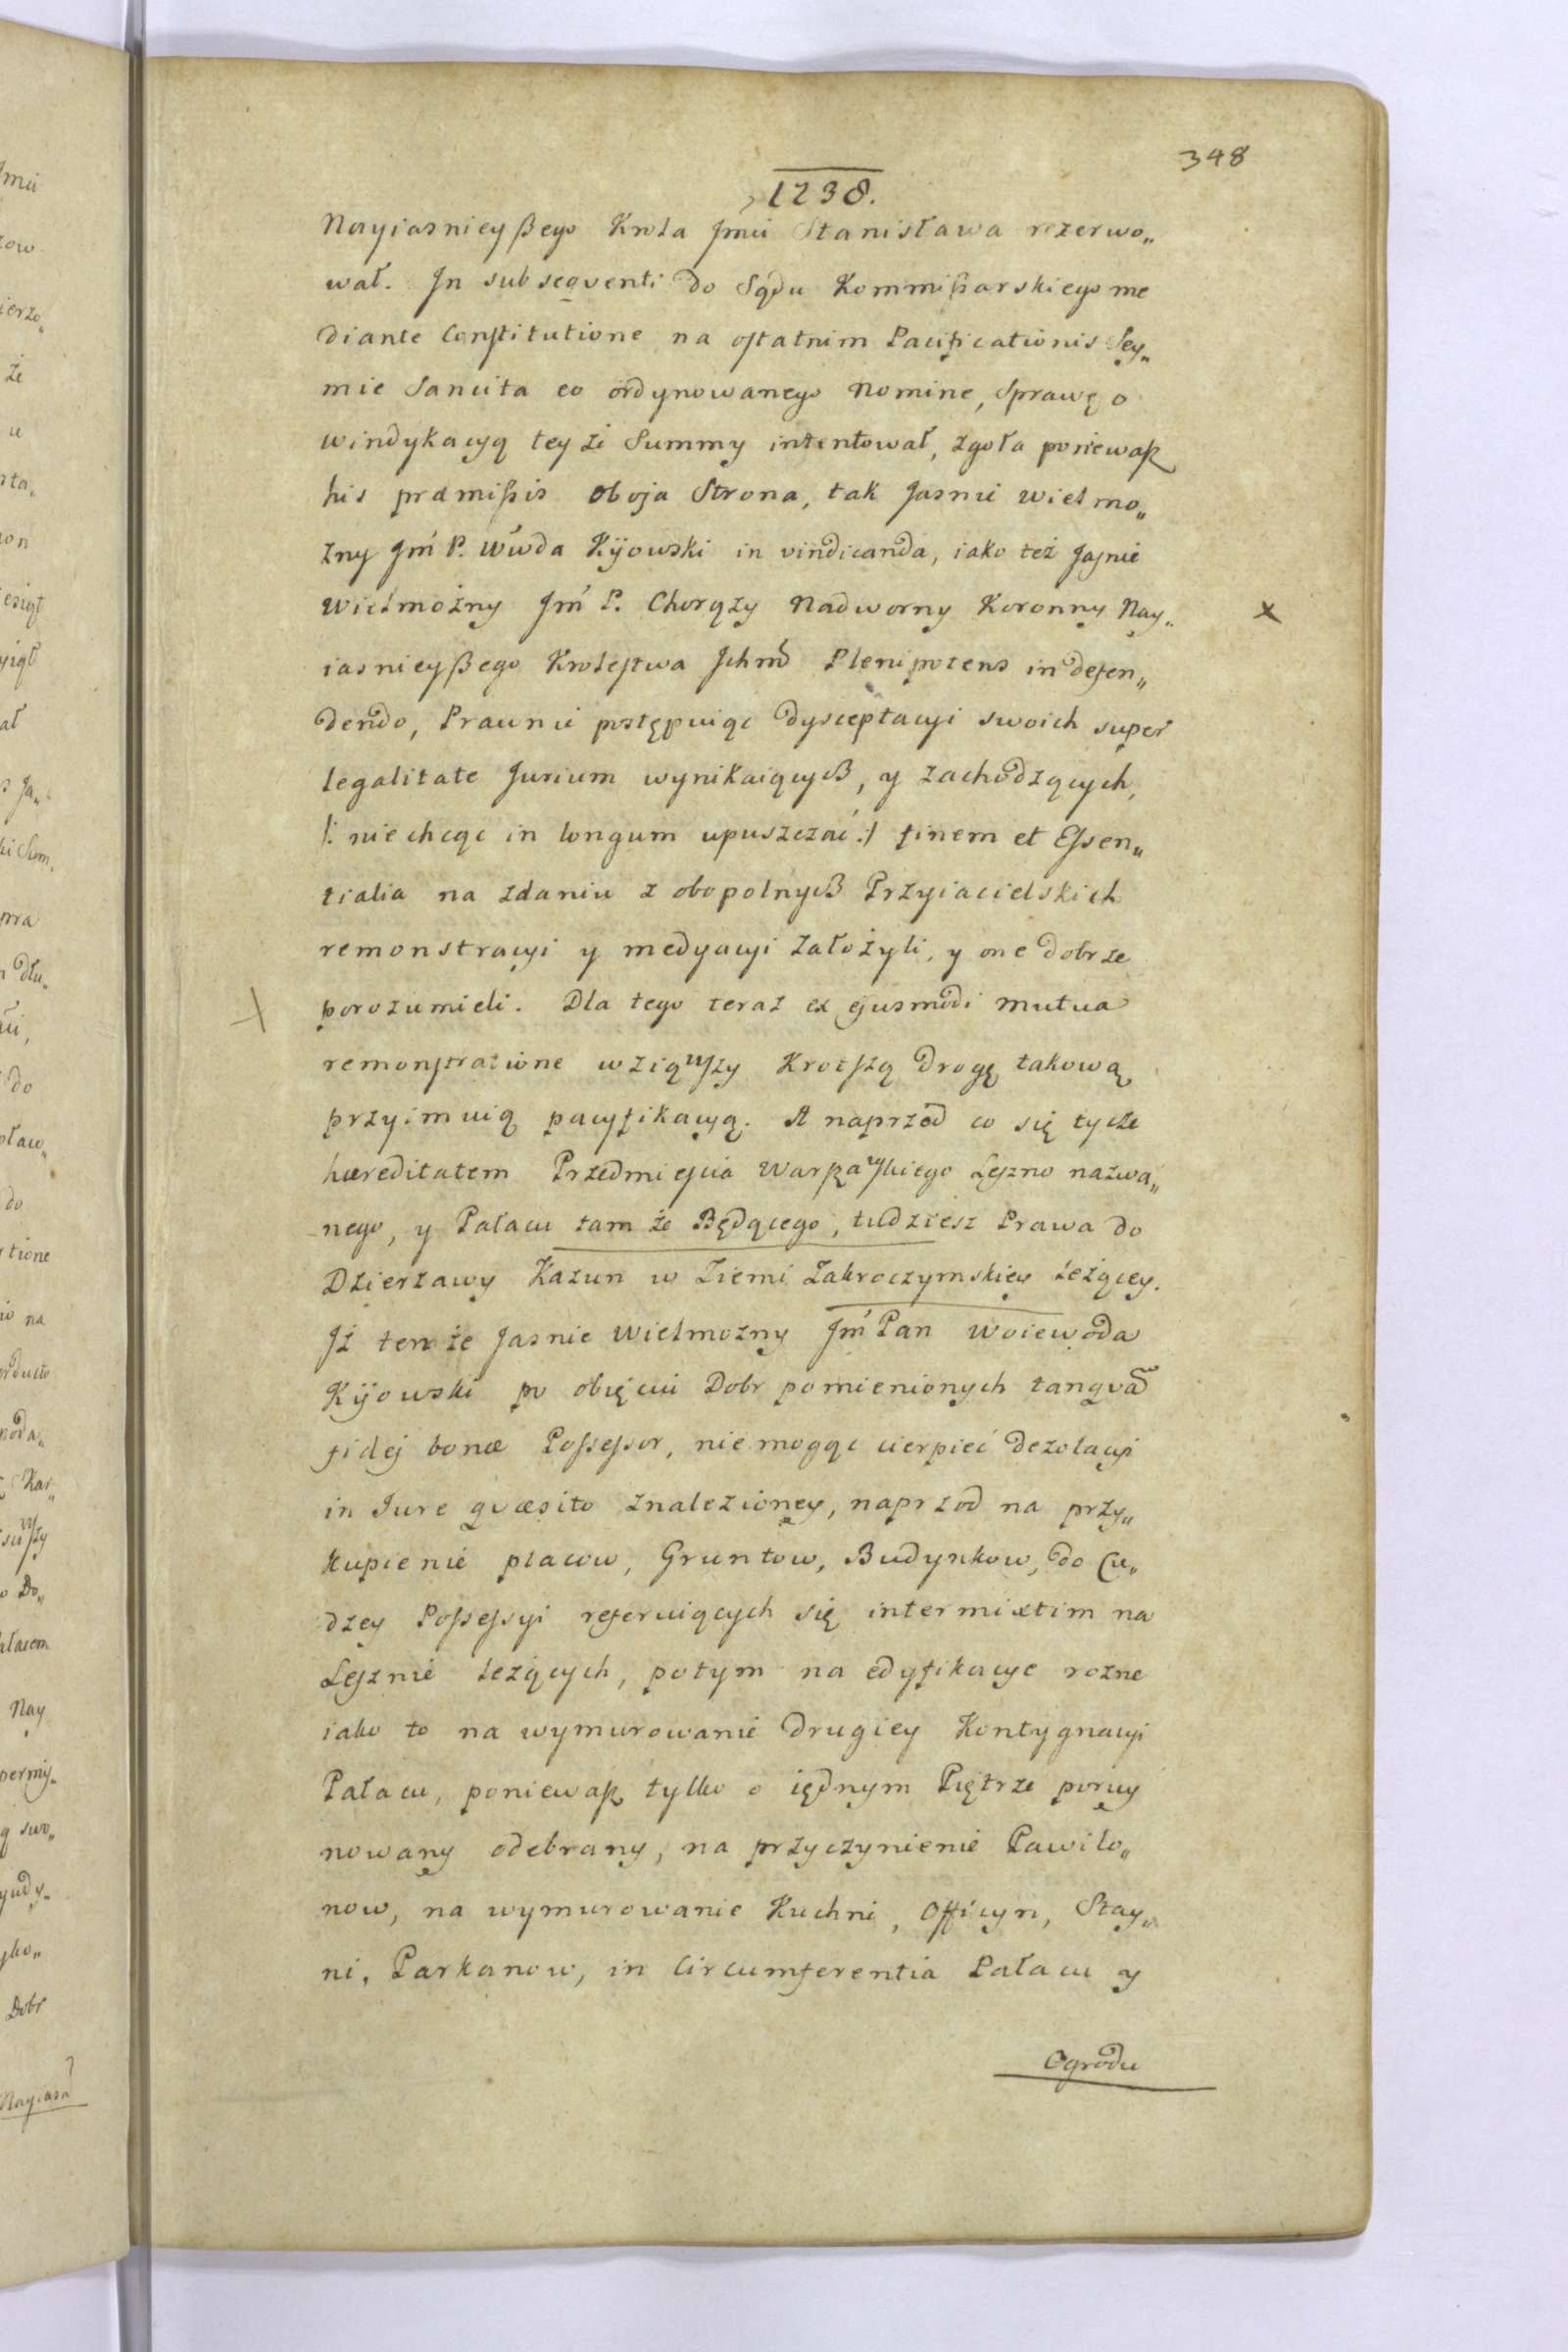 348
1238.
Nayiasnieyßego Krola Jmci Stanisława rezerwo„
wał. Jn subseqventi do Sądu Kommißarskiego me
diante Constitutione na ostatnim Pacificationis Sey„
mie Sancita eo ordynowanego nomine, Sprawę o
windykacyą teyże Summy intentował, zgoła poniewaß
his præmißis oboja Strona, tak Jasnie wielmo„
zny Jm̃ P. Wwda Kijowski in vindicanda, iako też Jasnie
Wielmożny Jm̃ P. Chorąży Nadworny Koronny Nay„
iasnieyßego Krolestwa Jchmć Plenipotens in defen„
dendo, Prawnie postępuiąc dysceptacyi swoich super
legalitate Jurium wynikaiących, y zachodzących,
/: nie chcąc in longum upuszczać :/ finem et Essen„
tialia na zdaniu z obopolnych Przyiacielskich
remonstracyi y medyacyi założyli, y one dobrze
porozumieli. Dla tego teraz ex ejusmodi mutua
remonstratione wziąwszy Krotszą drogę takową
przyimuią pacyfikacyą. A naprzod co się tycze
hæreditatem Przedmieścia Warßawskiego Leszno nazwa„
nego, y Pałacu tam że Będącego, tudziesz Prawa do
Dzierzawy Kazun w Ziemi Zakroczymskiey leżącey.
Jż ten że Jasnie Wielmozny Jm̃ Pan Woiewoda
Kijowski po obięciu Dobr pomienionych tanqvã
fidej bonæ Possessor, nie mogąc cierpieć dezolacyi
in Jure qvæsito znalezioney, naprzod na przy„
kupienie placow, Gruntow, Budynkow, do Cu„
dzey Possessyi referuiących się intermixtim na
Lesznie leżących, potym na edyfikacye rozne
iako to na wymurowanie drugiey Kontygnacyi
Pałacu, poniewaß tylko o iednym Piętrze poruy
nowany odebrany, na przyczynienie Pawilo„
now, na wymurowanie Kuchni, Officyn, Stay„
ni, Parkanow, in Circumferentia Pałacu y
Ogrodu